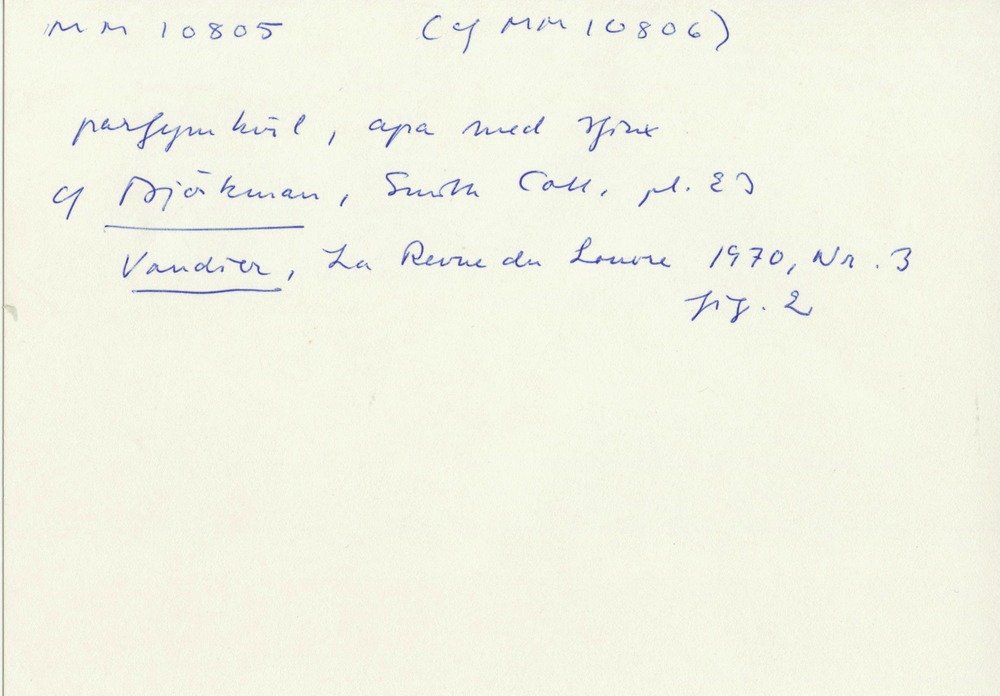 MM 10805 (cf MM 10806)
parfymkärl, apa med sfinx
cf Björkman, Smith Coll, pl. 23
Vandier, La Revue du Louvre 1970, Nr. 3
fig. 2